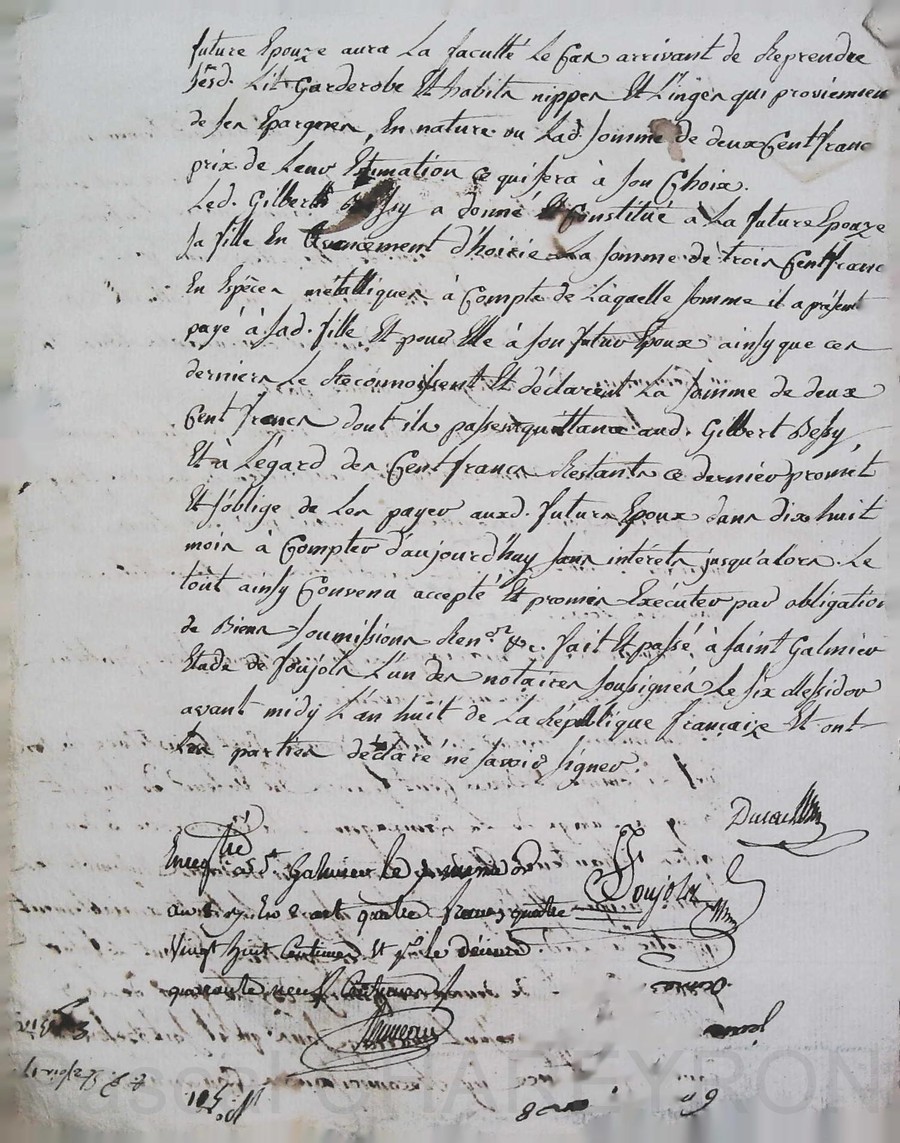 future Epouze aura La faculté Le Cas arrivant de Reprendre
Sesd. Lit Garderobe Et habits nippes Et Linges qui proviennen
de ses Epargnes, En nature ou Lad. Somme de deux Cent franc
prix de Leur Estimation ce qui sera à son Choix.
Led. Gilbert Bessy a donné Et Constitué à La future Epouze
sa fille En avancement d'hoirie La somme de trois Cent franc
En Espèces métalliques à Compte de Laquelle somme il a présent
payé à sad. fille Et pour Elle à son futur Epoux ainsy que ces
derniers Le Reconnoissent Et déclarent La somme de deux
Cent francs dont ils passent quittance aud. Gilbert Bessy,
Et à Legard des Cent francs Restants ce dernier promet
Et s'oblige de Les payer auxd. futurs Epoux dans dix huit
mois à Compter d'aujourd'huy sans intérets jusqu'alors. Le
tout ainsy Convenu accepté Et promes Exécuter par obligation
de Biens Soumissions Ren.on &c. fait Et passé à Saint Galmier
Etude de Soujols L'un des notaires soussignés Le six Messidor
avant midy L'an huit de La République françaize Et ont
Les parties déclaré ne savoir signer.
Enregistré à St Galmier le
an 8 quatre francs quatre
Vingt huit Centimes Et pr Le décime
quarante neuf Centimes
Soujols